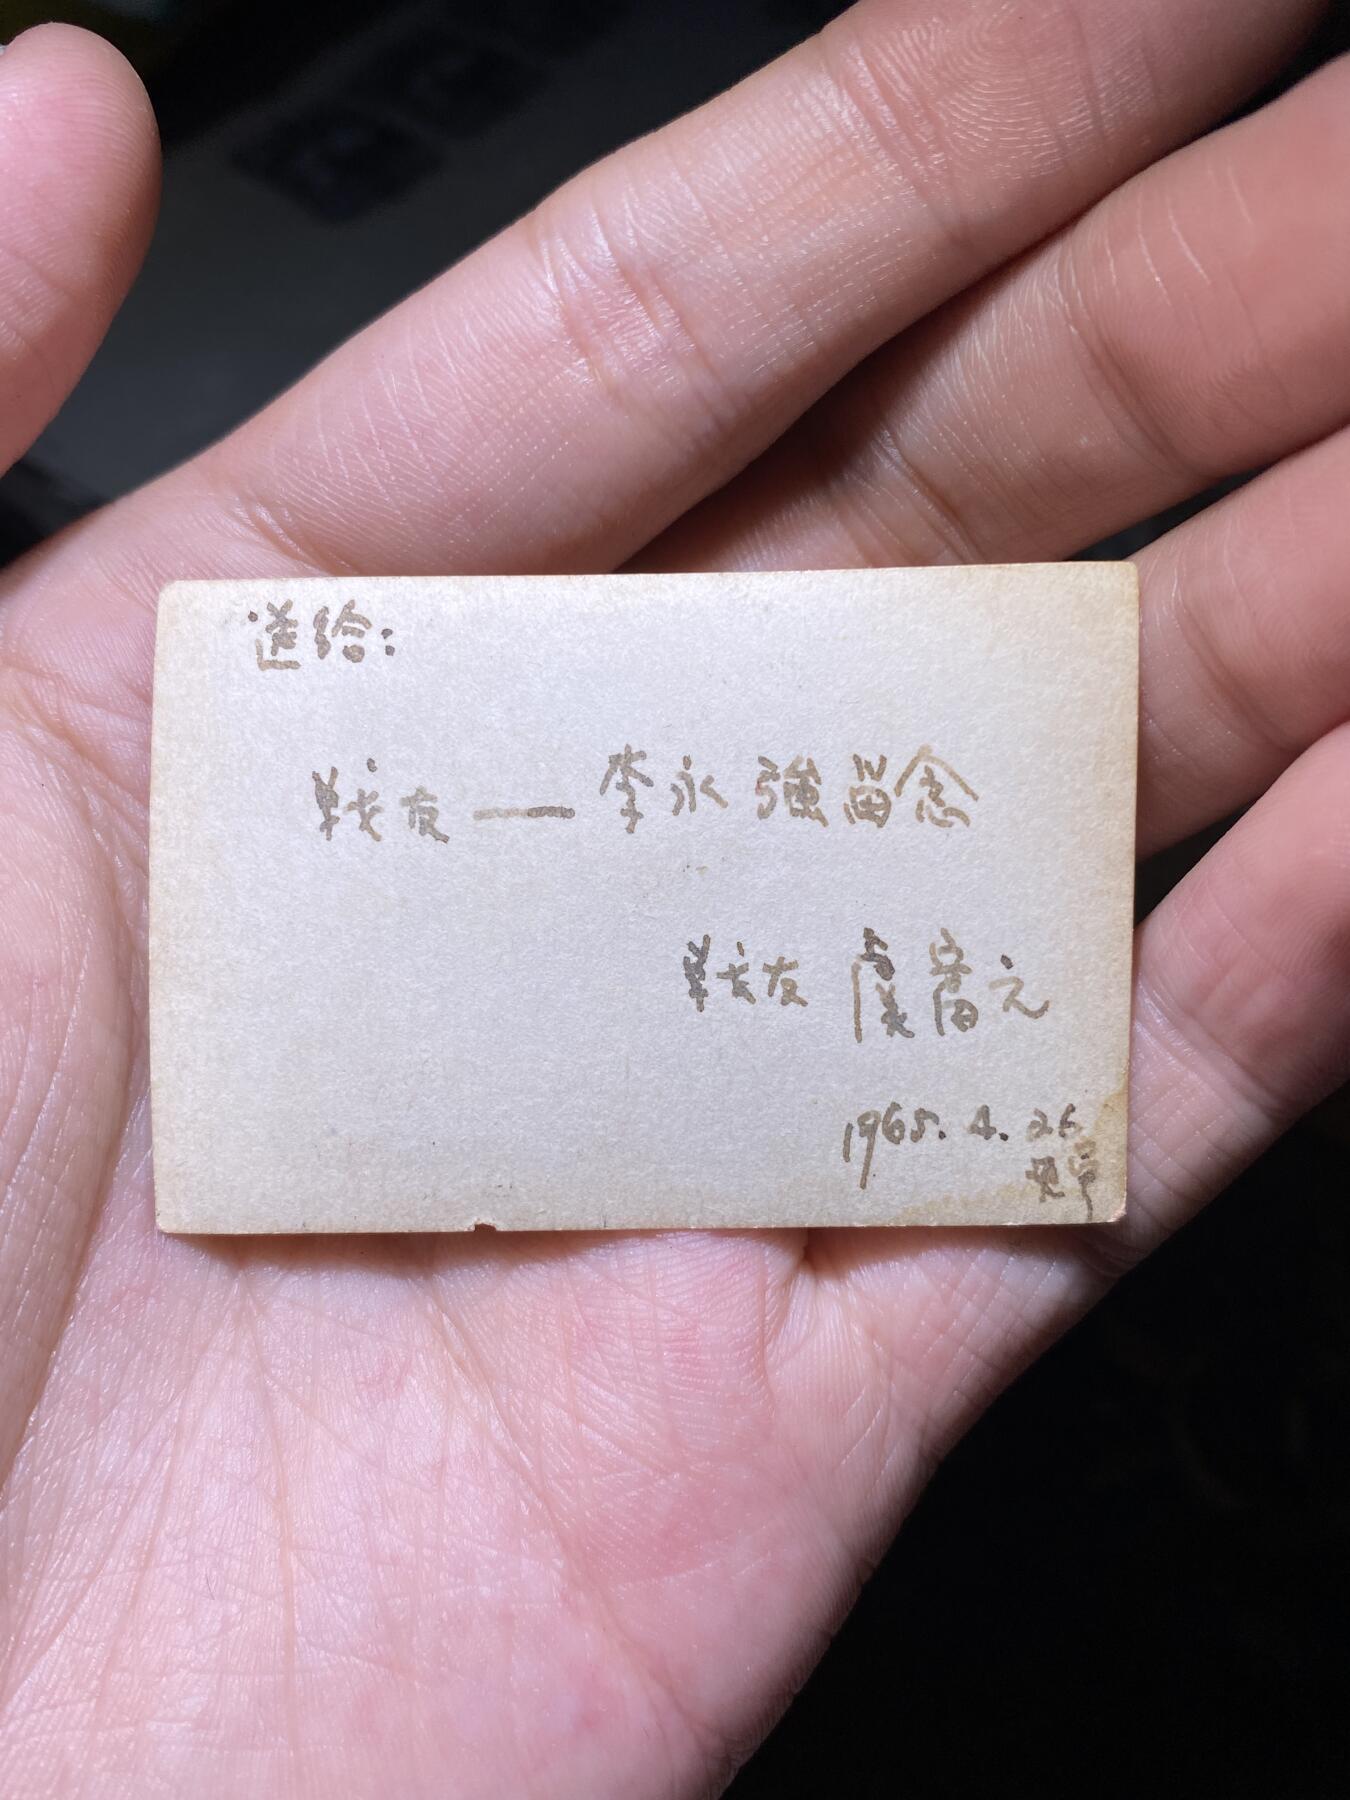 送给:
战友——李永強留念
战友 虞富元
1965.4.26